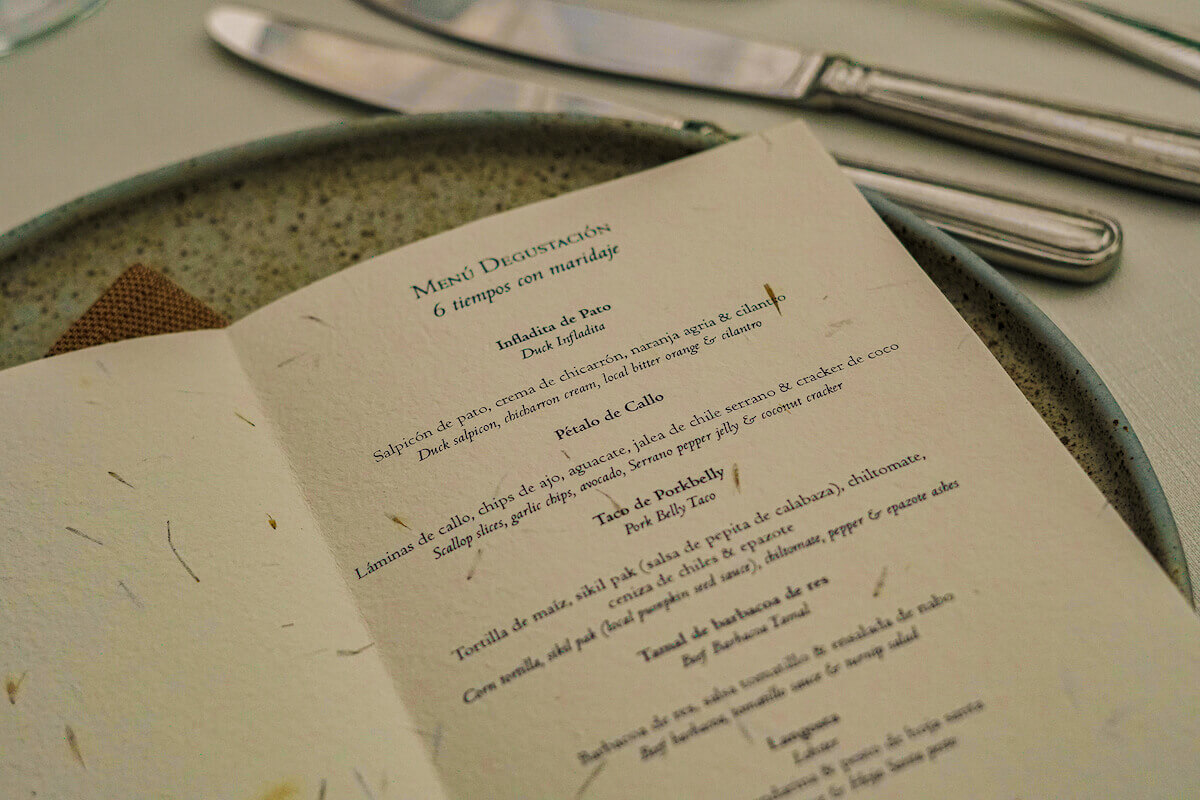 Menú Degustación
6 tiempos con maridaje
Infladita de Pato
Duck Infladita
Salpicón de pato, crema de chicarrón, naranja agria & cilantro
Duck salpicon, chicharron cream, local bitter orange & cilantro
Pétalo de Callo
Láminas de callo, chips de ajo, aguacate, jalea de chile serrano & cracker de coco
Scallop slices, garlic chips, avocado, Serrano pepper jelly & coconut cracker
Taco de Porkbelly
Pork Belly Taco
Tortilla de maíz, sikil pak (salsa de pepita de calabaza), chiltomate,
ceniza de chiles & epazote
Corn tortilla, sikil pak (local pumpkin seed sauce), chiltomate, pepper & epazote ashes
Tamal de barbacoa de res
Beef Barbacoa Tamal
Barbacoa de res, salsa tomatillo & ensalada de nabo
Beef barbacoa, tomatillo sauce & turnip salad
Langosta
Lobster
& pesto de hoja santa
& Hoja Santa pesto